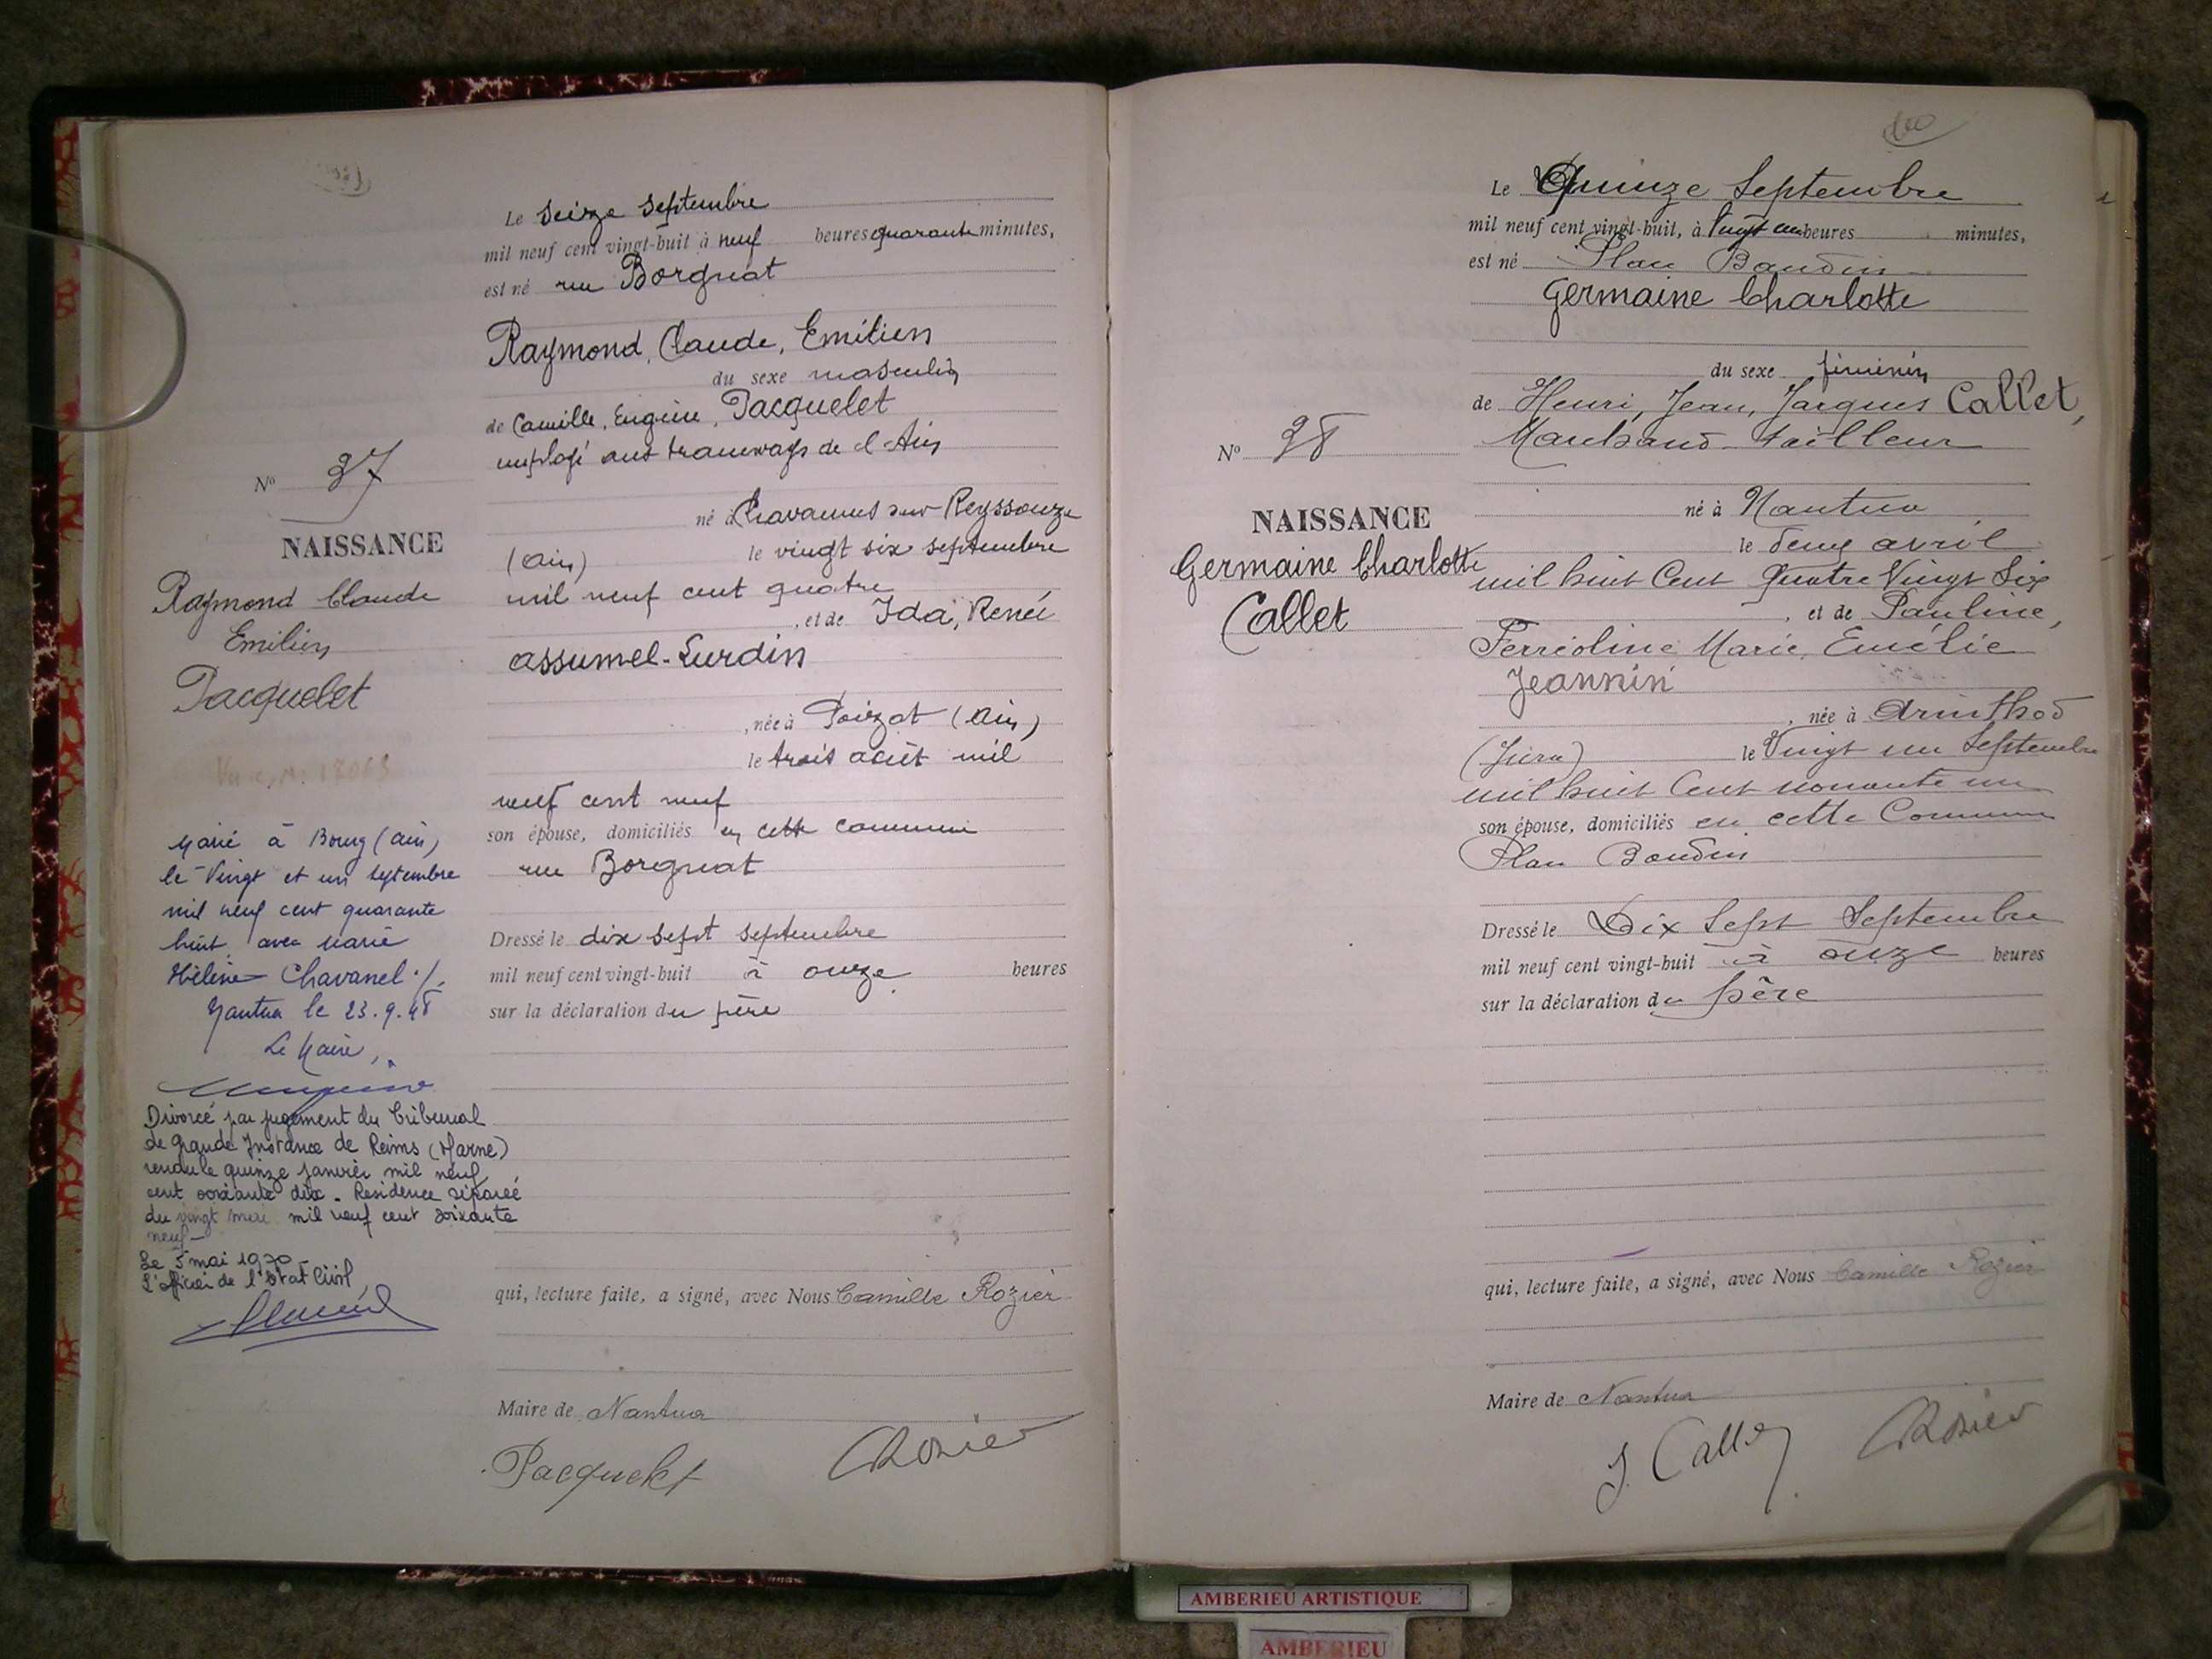 Le seize septembre
mil neuf cent vingt-huit à neuf heures quarante minutes,
est né rue Borgnat
Raymond, Claude, Emilien
du sexe masculin
de Camille, Eugène, Pacquelet
employé aux tramways de l'Ain
né à Chavannes sur Reyssouze
(Ain) le vingt six septembre
mil neuf cent quatre
, et de Ida, Renée
Assumel-Lurdin
, née à Poizat (Ain)
le trois août mil
neuf cent neuf
son épouse, domiciliés en cette commune
rue Borgnat
Dressé le dix sept septembre
mil neuf cent vingt-huit à onze heures
sur la déclaration du père
qui, lecture faite, a signé, avec Nous Camille Rozier
Maire de Nantua
Pacquelet CRozier
N° 27
NAISSANCE
Raymond Claude
Emilien
Pacquelet
Marié à Bourg (Ain)
le Vingt et un septembre
mil neuf cent quarante
huit avec Marie
Hélène Chavanel ./.
Nantua le 23.9.48
Le Maire,
Divorcé par jugement du Tribunal
de Grande Instance de Reims (Marne)
rendu le quinze janvier mil neuf
cent soixante dix. Résidence séparée
du vingt mai mil neuf cent soixante
neuf
Le 5 mai 1970
L'officier de l'Etat Civil
Le Quinze Septembre
mil neuf cent vingt-huit, à Vingt une heures minutes,
est né Plan Baudin
Germaine Charlotte
du sexe féminin
de Henri, Jean, Jacques Callet,
Marchand tailleur
né à Nantua
le deux avril
mil huit Cent Quatre Vingt Six
, et de Pauline,
Ferréoline Marie, Emélie
Jeannin
, née à Arinthod
(Jura) le Vingt un Septembre
mil huit Cent nonante un
son épouse, domiciliés en cette Commune
Plan Baudin
Dressé le Dix Sept Septembre
mil neuf cent vingt-huit à onze heures
sur la déclaration du père
qui, lecture faite, a signé, avec Nous Camille Rozier
Maire de Nantua
J. Callet CRozier
N° 28
NAISSANCE
Germaine Charlotte
Callet
AMBERIEU ARTISTIQUE
AMBERIEU